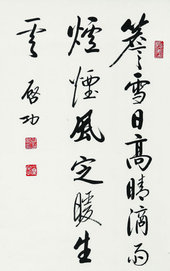 簷雪日高晴滴雨
爐煙風定暖生
雲 啓功